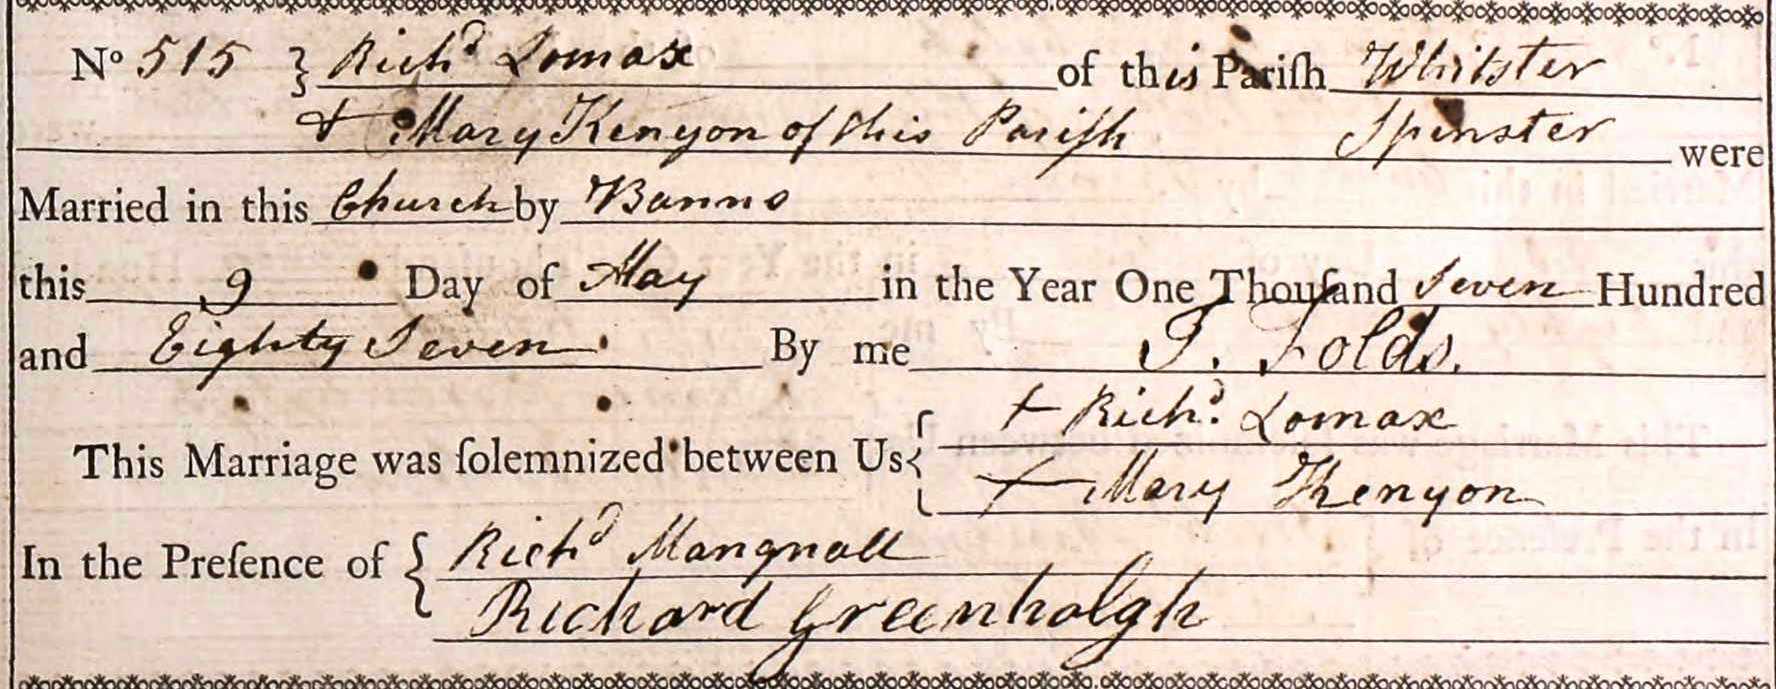 No 515 } Richd Lomax of this Pariſh Whitster
+ Mary Kenyon of this Pariſh Spinster were
Married in this Church by Banns
this 9 Day of May in the Year One Thouſand Seven Hundred
and Eighty Seven By me J. Folds.
This Marriage was ſolemnized between Us { + Richd. Lomax
+ Mary Kenyon
In the Preſence of { Richd Mangnall
Richard Greenhalgh